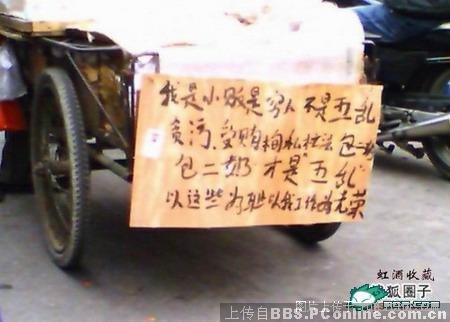 我是小贩是穷人不是五乱
贪污、受贿徇私枉法包二奶
包二奶才是"五乱"
以这些为耻以我工作为光荣
虹酒收藏
搜狐圈子
上传自BBS.PConline.com.cn